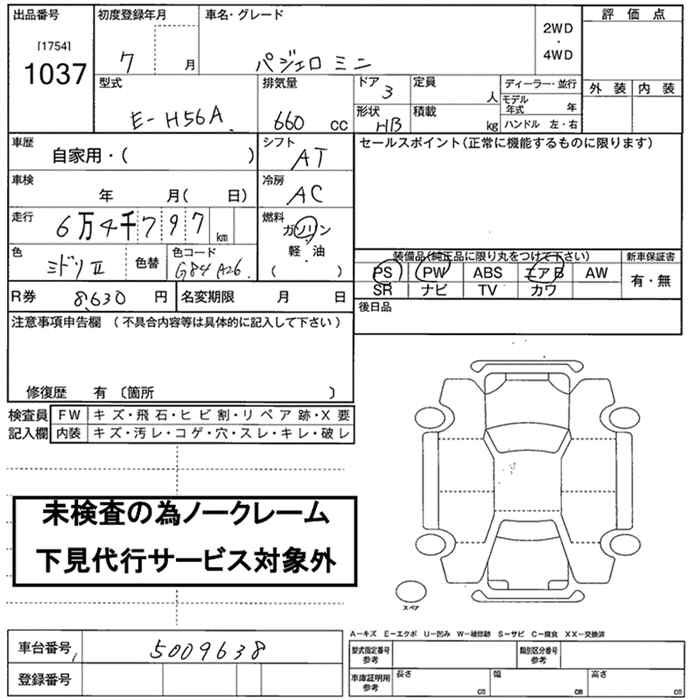 出品番号 初度登録年月 車名・グレード 評価点
[1754]
1037
7 月 パジェロ ミニ
2WD
・
4WD
外装 内装
型式 排気量 ドア 定員 ディーラー・並行
E-H56A 660 cc 3 人
モデル年式 年
形状 積載
HB kg ハンドル 左・右
車歴 シフト セールスポイント(正常に機能するものに限ります)
自家用・( ) AT
車検 冷房
年 月( 日) AC
走行 燃料
6万4千797 km ガソリン
・
軽・油
( )
色 色替 色コード
ミドリII G84 A26
装備品(純正品に限り丸をつけて下さい) 新車保証書
PS PW ABS エアB AW 有・無
SR ナビ TV カワ
R券 8,630 円 名変期限 月 日
後日品
注意事項申告欄 (不具合内容等は具体的に記入して下さい)
修復歴 有 〔箇所 〕
検査員 FW キズ・飛石・ヒビ割・リペア跡・X要
記入欄 内装 キズ・汚レ・コゲ・穴・スレ・キレ・破レ
未検査の為ノークレーム
下見代行サービス対象外
スペア
A-キズ E-エクボ U-凹み W-補修跡 S-サビ C-腐食 XX-交換済
車台番号 5009638
登録番号
型式指定番号 参考 類別区分番号 参考
車庫証明用 参考 長さ cm 幅 cm 高さ cm